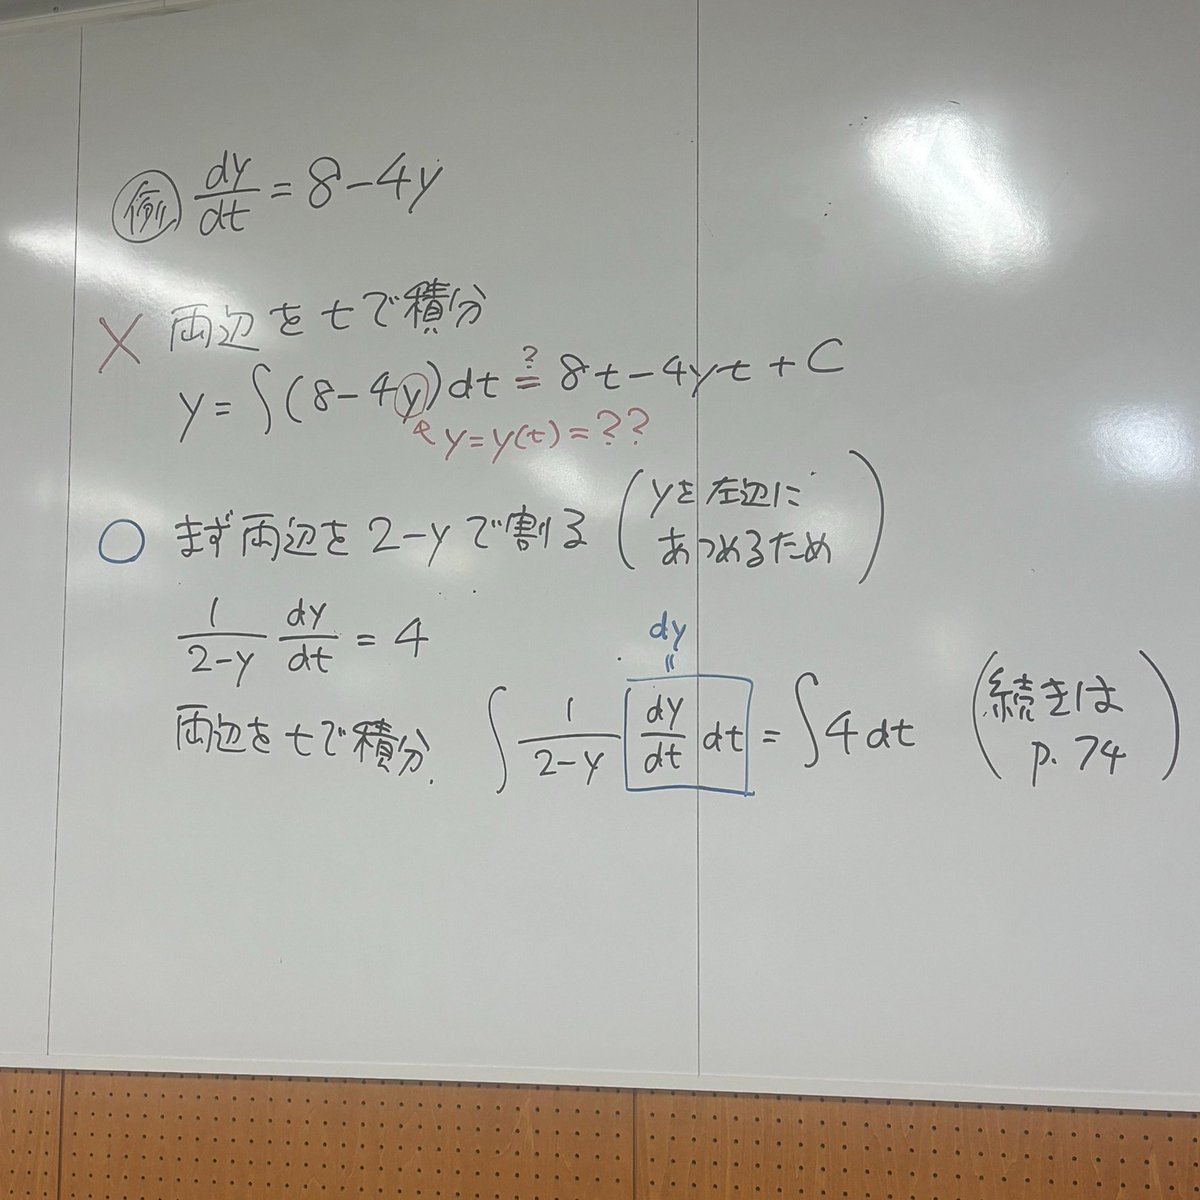 例 dy/dt = 8-4y
× 両辺をtで積分
y = ∫(8-4y)dt ?= 8t-4yt+C
y=y(t)=??
○ まず両辺を2-yで割る (yを左辺に
あつめるため)
1/(2-y) dy/dt = 4
dy
॥
両辺をtで積分. ∫ 1/(2-y) dy/dt dt = ∫4dt (続きは
p.74)